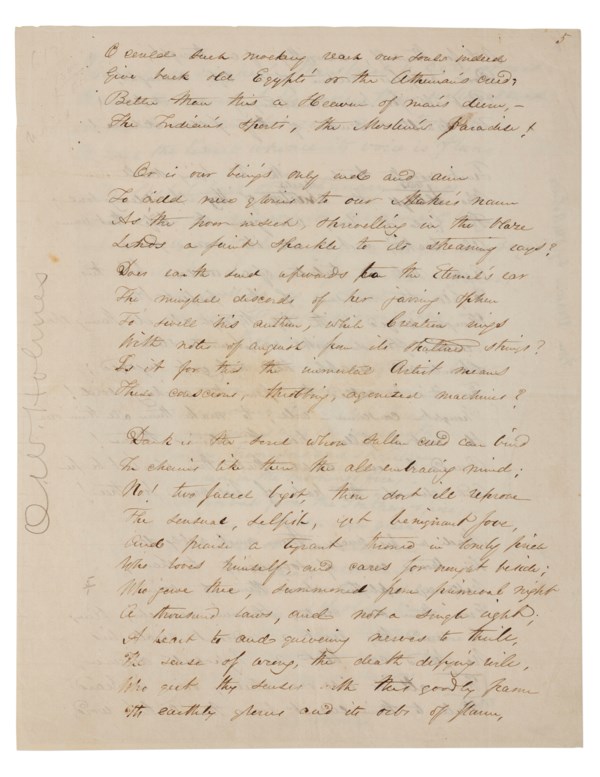 5
O could such mockery reach our souls indeed
Give back old Egypt's or the Athenian's creed;
Better than this a Heaven of man's device,—
The Indian's sports, the Moslem's paradise!
Or is our being's only end and aim
To add new glories to our Maker's name
As the poor insect, shrivelling in the blaze
Lends a faint sparkle to its streaming rays?
Does earth send upwards to the Eternal's ear
The mingled discords of her jarring sphere
To swell his anthem, while Creation rings
With notes of anguish from its shattered strings?
Is it for this the immortal Artist means
These conscious, throbbing, agonized machines?
Dark is the soul whose sullen creed can bind
In chains like these the all embracing mind;
No! two faced bigot, thou dost ill reprove
The sensual, selfish, yet benignant Jove,
And praise a tyrant throned in lonely pride
Who loves himself, and cares for nought beside;
Who gave thee, summoned from primeval night
A thousand laws, and not a single right,
A heart to and quivering nerves to thrill,
The sense of wrong, the death defying will,
Who girt thy senses with this goodly frame
Its earthly glories and its orbs of flame,
O. W. Holmes